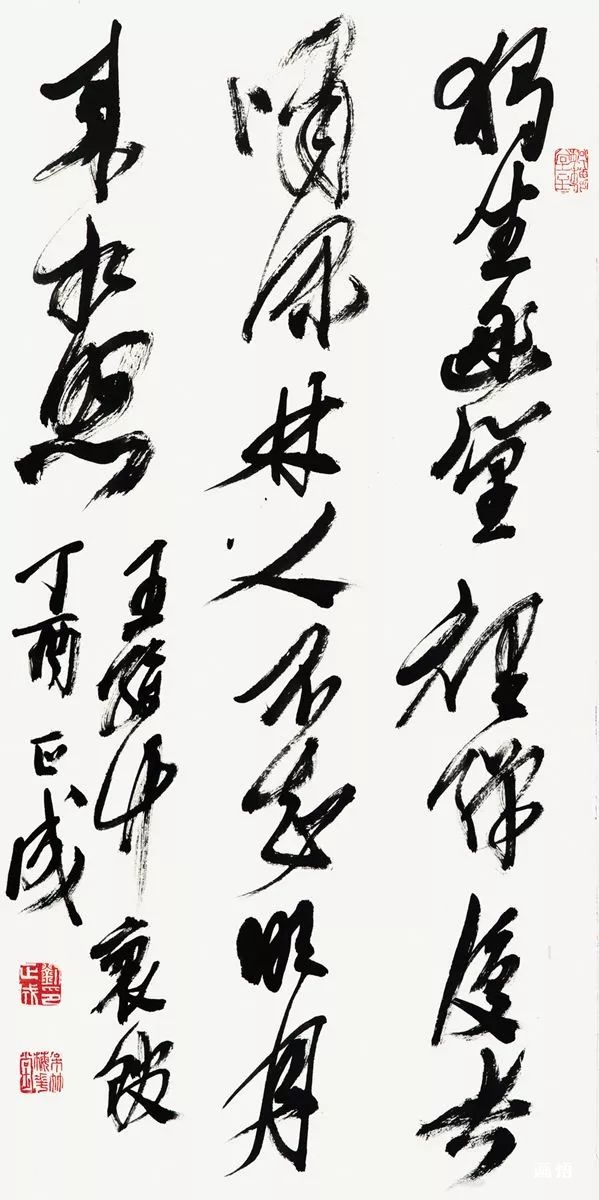 獨坐幽篁裡彈復長
嘯深林人不知明月
來相照
王維竹裏館
丁酉正成
劉正成印